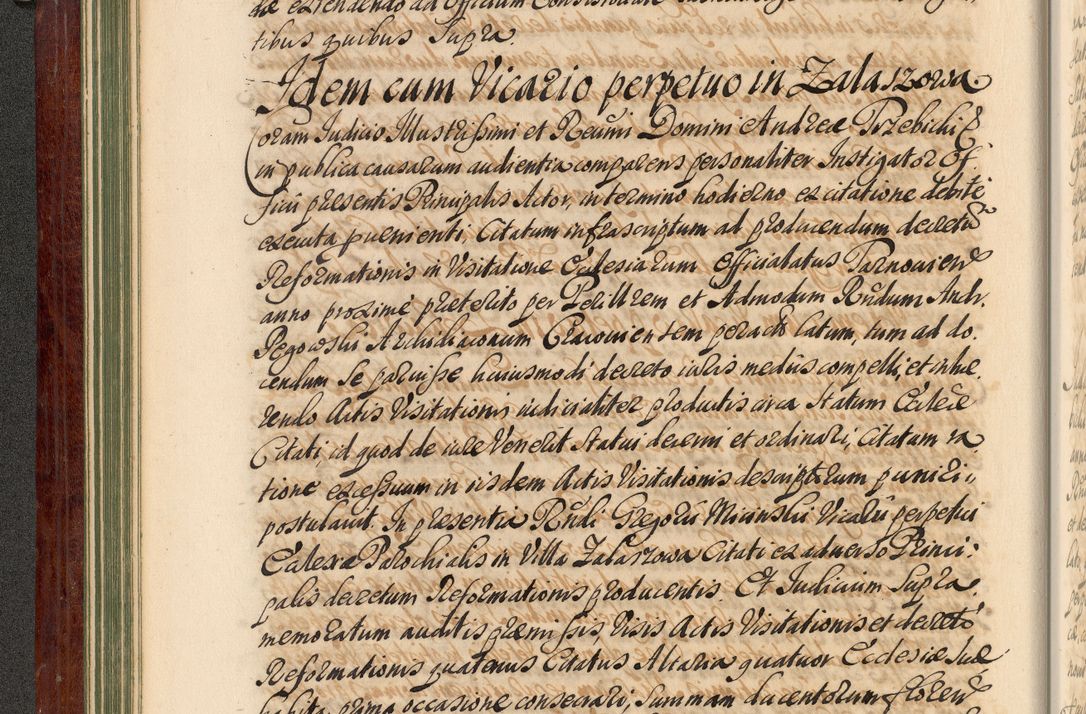 tibus quibus Supra.
Idem cum Vicario perpetuo in Zalaszowa
Coram Judicio Illustrissimi et Reu͠mi Domini Andreæ Trzebichi E
in publica causarum audientia comparens personaliter Instigator Of
ficii præsentis Principalis Actor, in termino hodierno ex citatione debite
executa puenienti, Citatum infrascriptum ad producendum decretu͠
Reformationis in Visitatione Ecclesiarum Officialatus Tarnouien͠
anno proxime præterito per Perillrem et Admodum Rn͠dum Andr.
Pegowski Archidiaconum Cracouiensem peracta latum, tum ad do
cendum Se paruisse huiusmodi decreto iuris medijs compelli, et inhæ
rendo Actis Visitationis iudicialiter productis circa Statum Ecclesiæ
Citati, id quod de iure Venerit Statui decerni et ordinari, Citatum ra
tione excessuum in iisdem Actis Visitationis descriptorum puniri
postulauit. In præsentia Rn͠di Gregorii Micinski Vicarii perpetui
Ecclesiæ Parochialis in Villa Zalaszowa Citati ex aduerso Princi:
palis decretum Reformationis producentis. Et Judicium Supra
memoratum auditis præmissis, Visis Actis Visitationis et decreto
Reformationis quatenus Citatus Altaria quatuor Ecclesiæ Suæ
habita prima occasione consecrari, Summam ducentorum floren͠